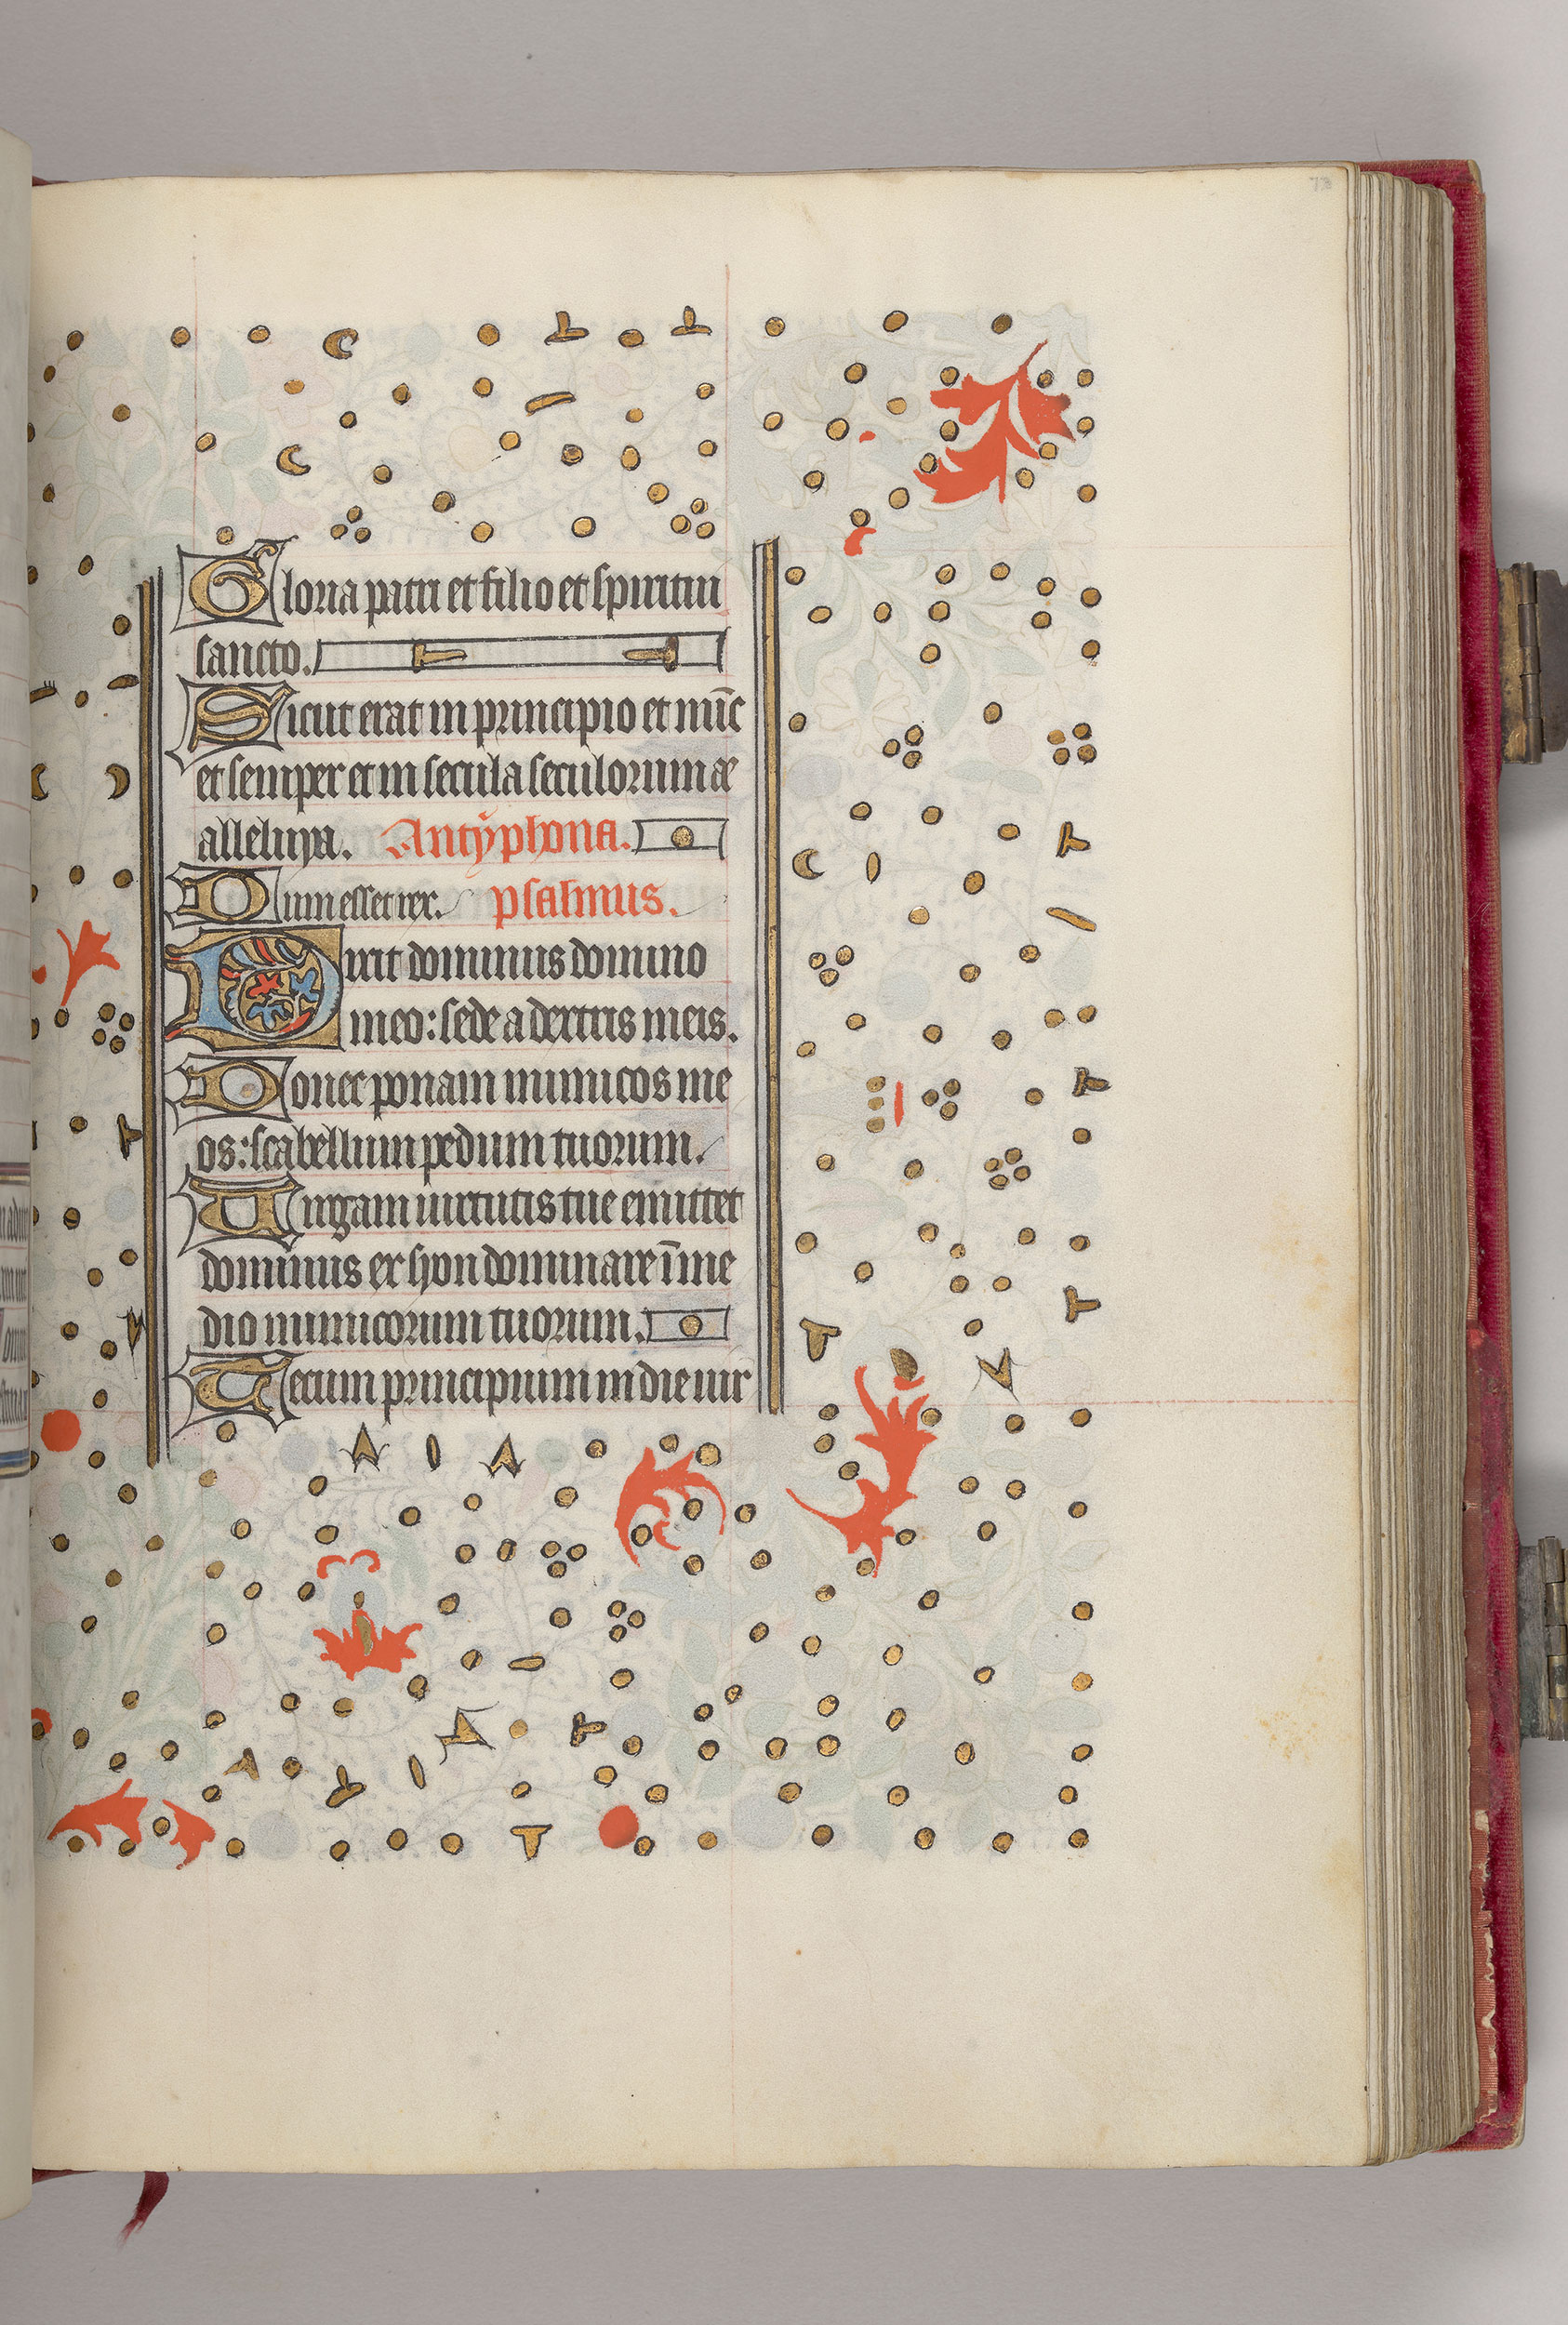 73
Gloria patri et filio et spiritui
sancto.
Sicut erat in principio et nūc
et semper et in secula seculorum ae
alleluya. Antyphona.
Dum esset rex. psalmus.
Dixit dominus domino
meo: sede a dextris meis.
Donec ponam inimicos me
os: scabellum pedum tuorum.
Uirgam uirtutis tue emittet
dominus ex syon dominare ī me
dio inimicorum tuorum.
Tecum principium in die uir